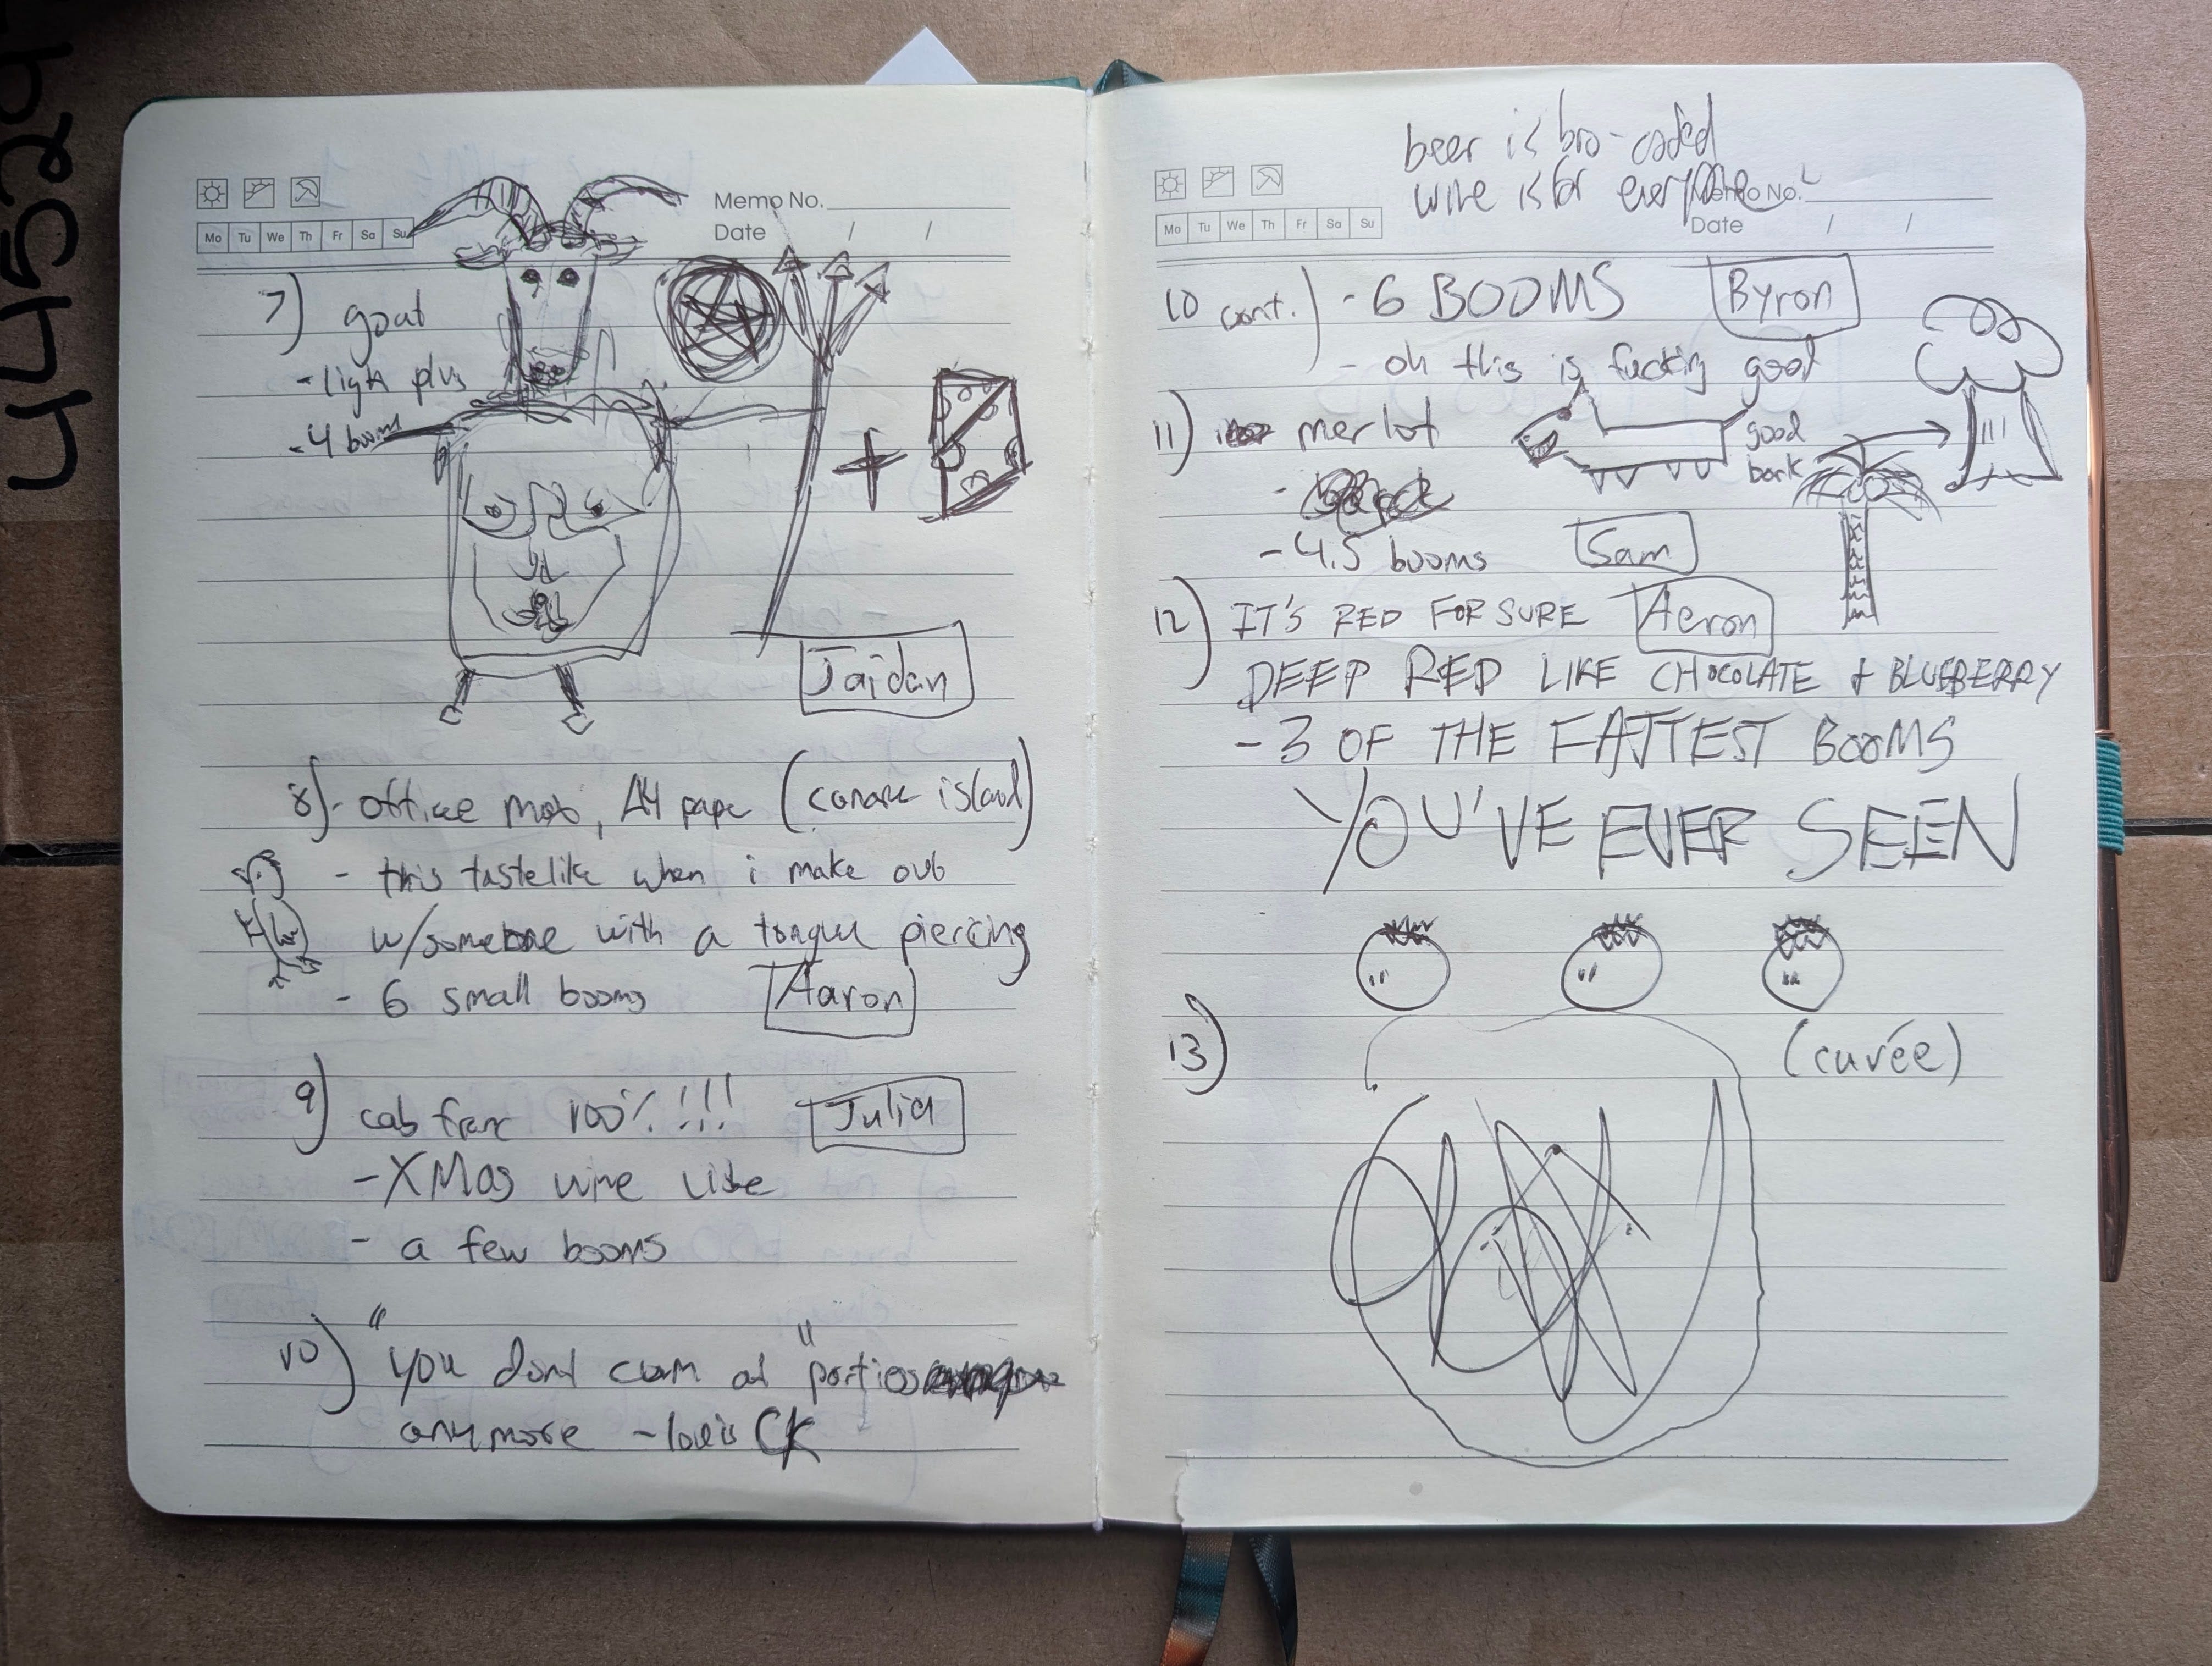 44529
Memo No.
Mo Tu We Th Fr Sa Su
Date / /
7) goat
- light plus
- 4 booms
+
Jaidan
8) - office mob, A4 pape (canare island)
- this taste like when i make out
w/someone with a tongue piercing
- 6 small booms
Aaron
9) cab franc 100% !!!
Julia
- XMas wine vibe
- a few booms
10) "you dont cum at parties"
anymore - louis CK
beer is bro-coded
wine is for everyone
Memo No.
Mo Tu We Th Fr Sa Su
Date / /
10 cont.) - 6 BOOMS
Byron
- oh this is fucking good
11) merlot
good
bark
- 4.5 booms
Sam
12) IT'S RED FOR SURE
Aeron
DEEP RED LIKE CHOCOLATE + BLUEBERRY
- 3 OF THE FATTEST BOOMS
YOU'VE EVER SEEN
13) (cuvée)